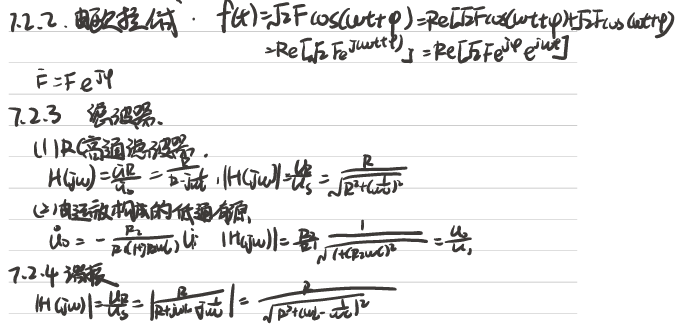 7.2.2. 欧拉公式. f(t)=√2Fcos(ωt+φ)=Re[√2Fcos(ωt+φ)+j√2Fcos(ωt+φ)]
=Re[√2Fe^{j(ωt+φ)}]=Re[√2Fe^{jφ}e^{jωt}]
Ḟ=Fe^{jφ}
7.2.3 滤波器.
(1)RC高通滤波器.
H(jω)= , |H(jω)|=U_R/U_S=R/√(R²+(1/ωC)²)
(2)由运放构成的低通有源
U̇o=-R₂/R₁(1+jR₂ωC) U̇i |H(jω)|=R₂/R₁ 1/√(1+(R₂ωC)²)=Uo/U₁
7.2.4 谐振
|H(jω)|=U_R/U_S=|R/(R+jωL+1/jωC)|=R/√(R²+(ωL-1/ωC)²)